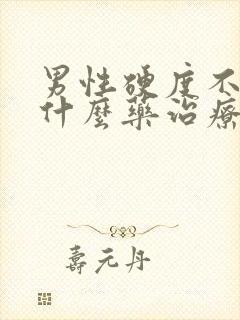 男性硬度不
什麼藥治療
壽元丹